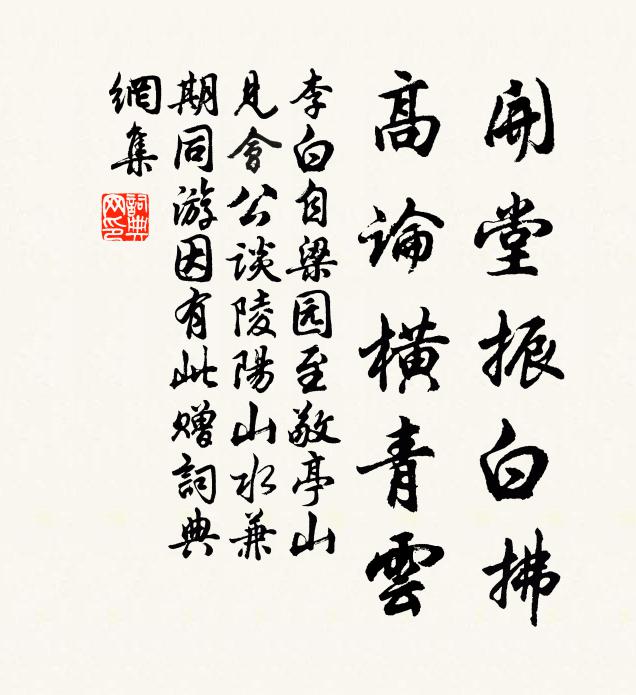 開堂振白拂
高論橫青雲
李白自梁园至敬亭山
見會公谈陵陽山水兼
期同游因有此赠詞典
網集
詞典
网印